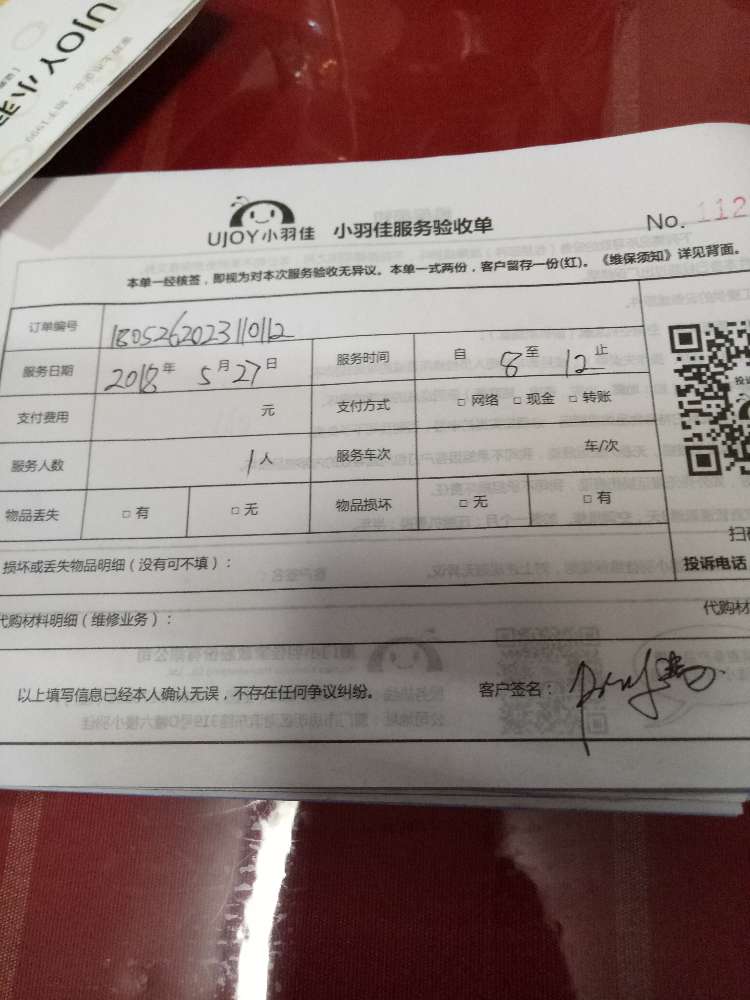 UJOY小羽
UJOY小羽佳 小羽佳服务验收单 No. 112
本单一经核签，即视为对本次服务验收无异议。本单一式两份，客户留存一份(红)。《维保须知》详见背面。
订单编号 1805262023110112
服务日期 2018年 5月27日 服务时间 自 8 至 12 止
支付费用 元 支付方式 □ 网络 □ 现金 □ 转账
服务人数 1人 服务车次 车/次
物品丢失 □ 有 □ 无 物品损坏 □ 无 □ 有
扫
损坏或丢失物品明细（没有可不填）： 投诉电话
代购材料明细（维修业务）： 代购材
以上填写信息已经本人确认无误，不存在任何争议纠纷。 客户签名：